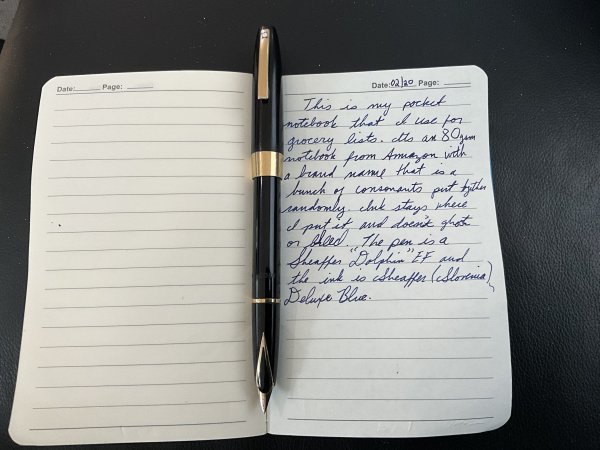 Date:_____ Page: _____
Date: 02/20 Page: _____
This is my pocket
notebook that I use for
grocery lists. Its an 80gsm
notebook from Amazon with
a brand name that is a
bunch of consonants put together
randomly. Ink stays where
I put it and doesn't ghost
or bleed. The pen is a
Sheaffer "Dolphin" EF and
the ink is Sheaffer (Slovenia)
Deluxe Blue.